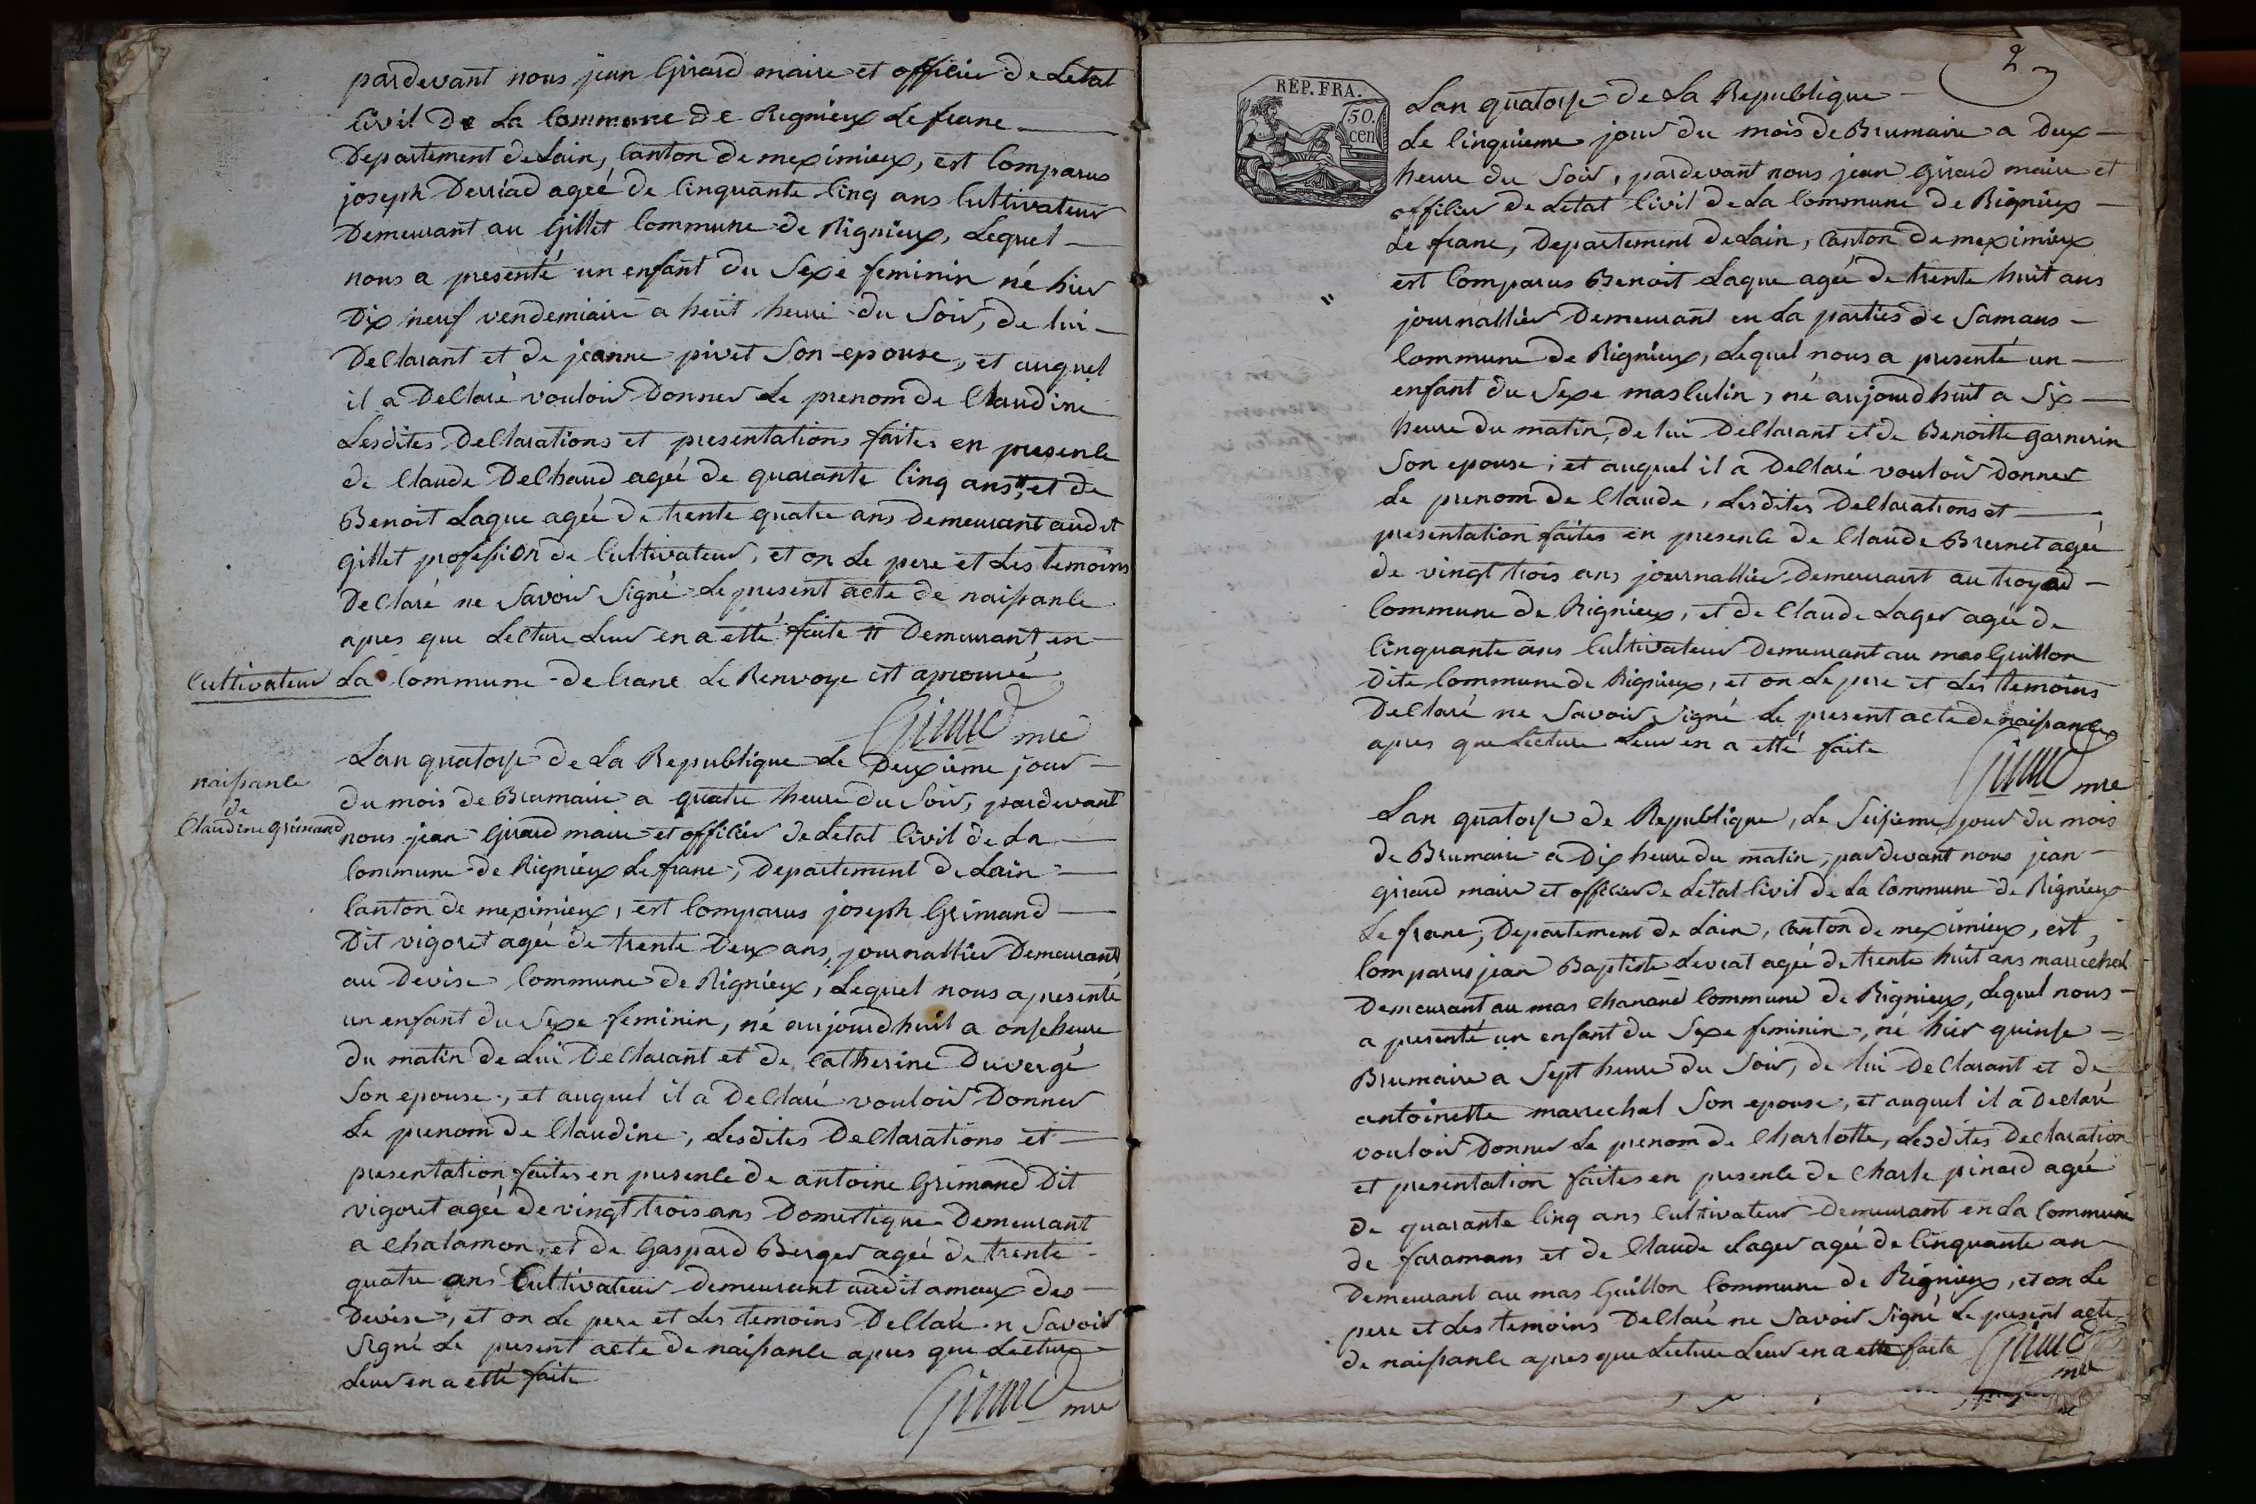 pardevant nous jean Girard maire et officier de Letat
Civil De La Commune De Rignieux Le franc
Departement de Lain, Canton de meximieux, est Comparus
joseph Derriad ageé de Cinquante Cinq ans Cultivateur
Demeurant au Gillet Commune de Rignieux, Lequel
nous a presenté un enfant du Sexe feminin né hier
Dix neuf vendemiaire a heuit heure du Soir, de lui
Declarant et de jeanne pivet Son epouse, et auquel
il a Declaré vouloir Donner Le prenom de Claudine
Lesdites Declarations et presentations faites en presence
de Claude Delhaud ageé de quarante Cinq ans, # et de
Benoit Laque ageé de trente quatre ans Demeurant audit
gillet profession de Cultivateur, et on Le pere et Les temoins
Declaré ne Savoir Signé Le present acte de naissance
apres que Lecture Leur en a etté faite # Demeurant en
Cultivateur La Commune de Crans Le Renvoye est aprouvé
Girard mre
Lan quatorse de La Republique Le Deuxieme jour
du mois de Brumaire a quatre heure du Soir, pardevant
naissance
de
Claudine Grimand
nous jean Girard maire et officier de Letat Civil de La
Commune de Rignieux Le franc, Departement de Lain
Canton de meximieux, est Comparus joseph Grimand
Dit vigoret ageé de trente Deux ans, journallier Demeurant
au Devise Commune de Rignieux, Lequel nous a presenté
un enfant du Sexe feminin, né aujourdhuit a onse heure
du matin de Lui Declarant et de Catherine Duvergé
Son epouse, et auquel il a Declaré vouloir Donner
Le prenom de Claudine, Lesdites Declarations et
presentation faites en presence de antoine Grimand Dit
vigoret ageé de vingt trois ans Domestique Demeurant
a Chalamon, et de Gaspard Berger ageé de trente
quatre ans Cultivateur demeurant audit amaux des
Devise, et on Le pere et Les temoins Declaré n Savoir
Signé Le present acte de naissance apres que Lecture
Leur en a etté faite
Girard mre
2
REP. FRA.
50.
cen
Lan quatorse de La Republique
Le Cinquieme jour du mois de Brumaire a Deux
heure du Soir, pardevant nous jean Girard maire et
officier de Letat Civil de La Commune de Rignieux
Le franc, Departement de Lain, Canton de meximieux
est Comparus Benoit Laque ageé de trente huit ans
journallier Demeurant en La parties de Samans
Commune de Rignieux, Lequel nous a presenté un
enfant du Sexe masculin, né aujourdhuit a Six
heure du matin, de lui Declarant et de Benoitte garnerin
Son epouse, et auquel il a Declaré vouloir Donner
Le prenom de Claude, Lesdites Declarations et
presentation faites en presence de Claude Brunet ageé
de vingt trois ans journallier Demeurant au troyad
Commune de Rignieux, et de Claude Lager ageé de
Cinquante ans Cultivateur Demeurant au mas Guillon
Dite Commune de Rignieux, et on Le pere et Les temoins
Declaré ne Savoir Signé Le present acte de naissance
apres que Lecture Leur en a etté faite
Girard mre
Lan quatorse de Republique, Le Seisieme jour du mois
de Brumaire a Dix heure du matin, pardevant nous jean
Girard maire et officier de Letat Civil de La Commune de Rignieux
Le franc, Departement de Lain, Canton de meximieux, est
Comparus jean Baptiste Levrat ageé de trente huit ans marrechal
Demeurant au mas Chanand Commune de Rignieux, Lequel nous
a presenté un enfant du Sexe feminin, né hier quinse
Brumaire a Sept heure du Soir, de lui Declarant et de
antoinette marrechal Son epouse, et auquel il a Declaré
vouloir Donner Le prenom de Charlotte, Lesdites Declaration
et presentation faites en presence de Charle pinard ageé
de quarante Cinq ans Cultivateur Demeurant en La Commune
de faramans et de Claude Lager ageé de Cinquante an
Demeurant au mas Guillon Commune de Rignieux, et on Le
pere et Les temoins Declaré ne Savoir Signé Le present acte
de naissance apres que Lecture Leur en a etté faite Girard
mre